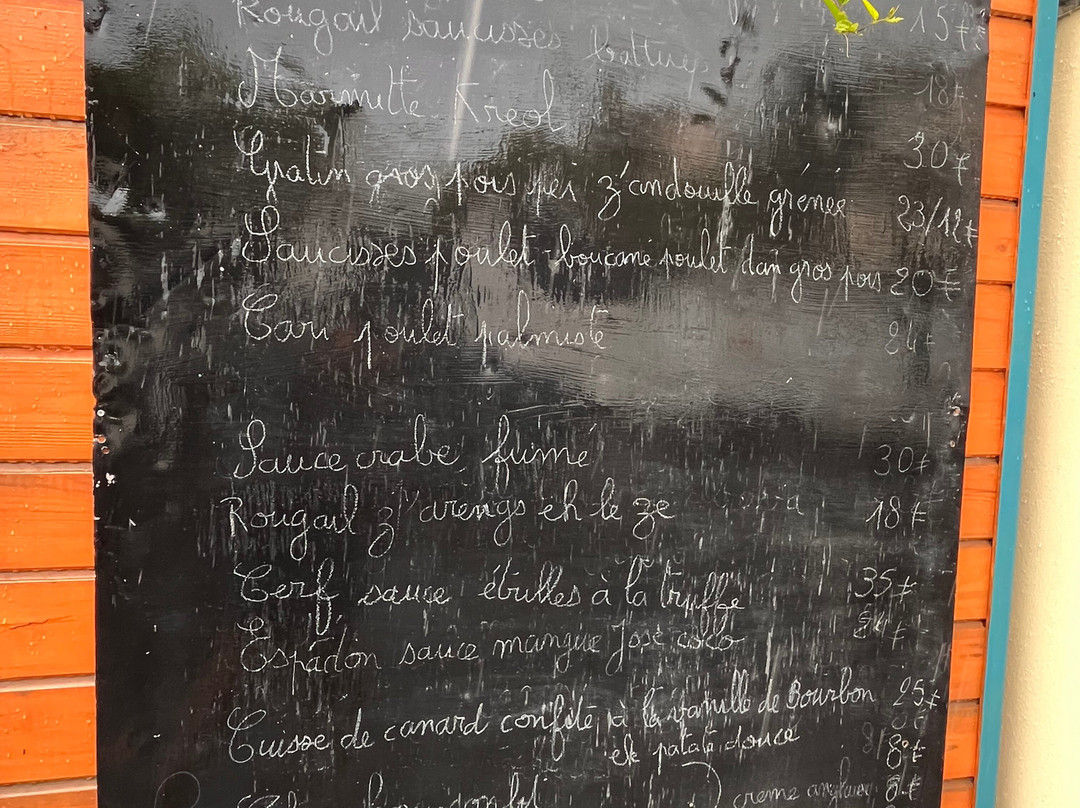 Rougail saucisses 15€
Marmitte Kreol 18€
Gratin gros pois pei z'andouille grénée 30€
23/12€
Saucisses poulet-boucané poulet dan gros pois 20€
Cari poulet palmiste 24€
Sauce crabe fumé 30€
Rougail z'arengs ek le ze 18€
Cerf sauce étrilles à la truffe 35€
Espadon sauce mangue José coco 24€
Cuisse de canard confite à la vanille de Bourbon 25€
ek patate douce 8€
creme